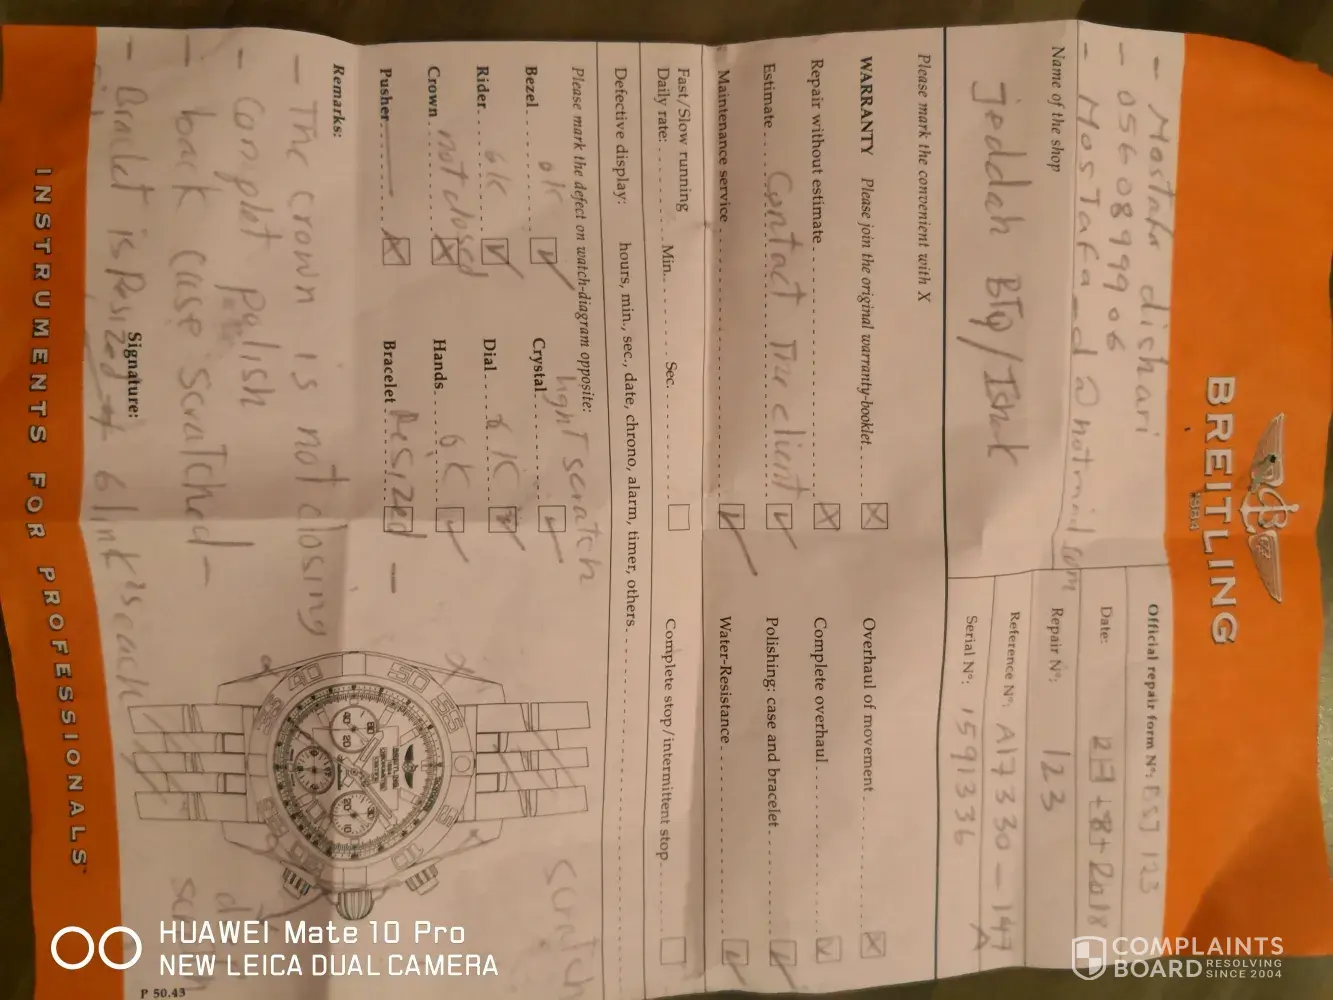 BREITLING
1884
- Mostafa dishari
- 0560899906
- Mostafa_d@hotmail.com
Official repair form N°: BSJ 123
Date: 27 + 8 + 2018
Name of the shop
Jeddah BTQ/
Repair N°: 123
Reference N°: A17330-147
A
Serial N°: 1591336
Please mark the convenient with X
WARRANTY Please join the original warranty-booklet
Overhaul of movement
Repair without estimate
Complete overhaul
Estimate Contact The client
Polishing: case and bracelet
Maintenance service
Water-Resistance
Fast/Slow running
Daily rate: Min. Sec.
Complete stop/intermittent stop
Defective display: hours, min., sec., date, chrono, alarm, timer, others
Please mark the defect on watch-diagram opposite:
light scratch
Bezel ok
Crystal
Rider ok
Dial ok
Crown not closed
Hands ok
Pusher
Bracelet Resized
scratch
Remarks:
- The crown is not closing
- Complet polish
- back case scratched -
- Braclet is Resized 6 link
Signature:
INSTRUMENTS FOR PROFESSIONALS
P 50.43
HUAWEI Mate 10 Pro
NEW LEICA DUAL CAMERA
COMPLAINTS
BOARD RESOLVING
SINCE 2004